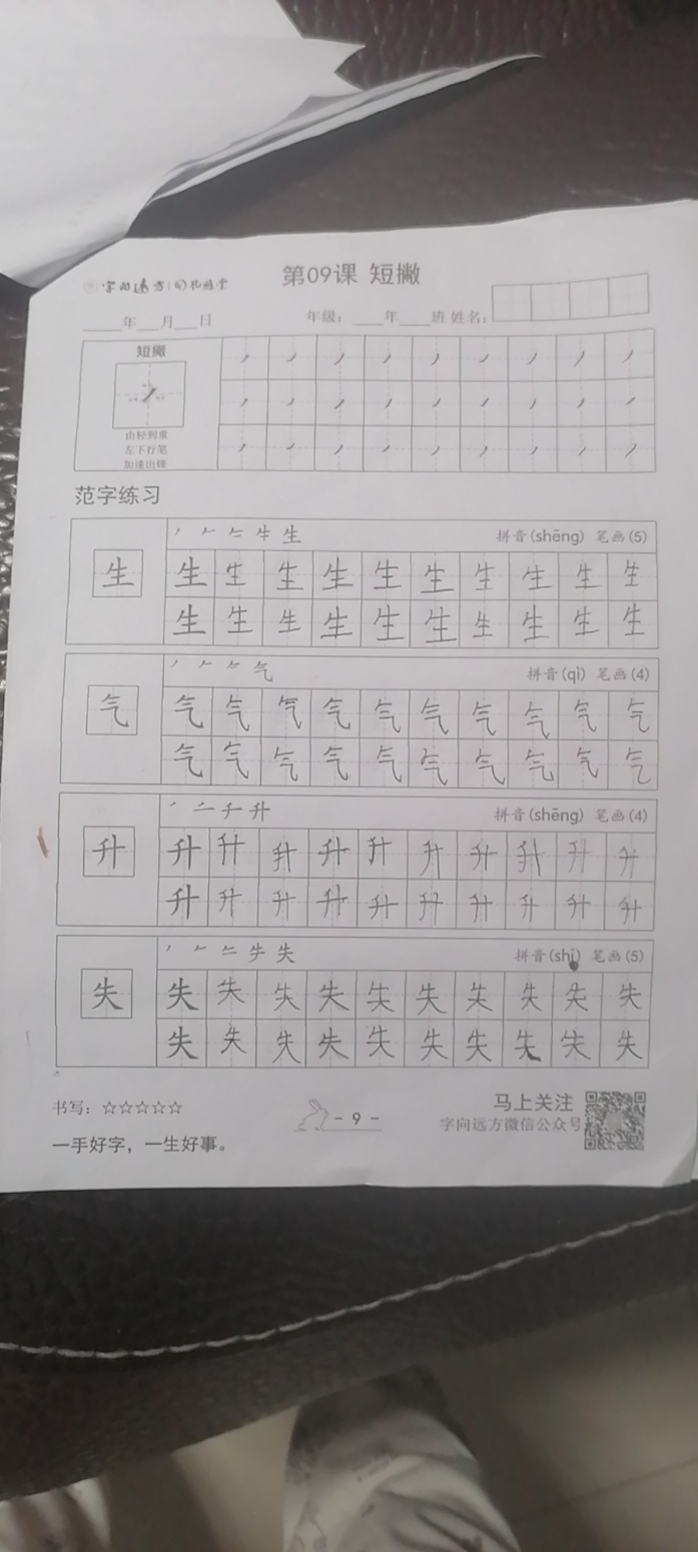 第09课 短撇
字向远方
____年___月___日 年级：____年____班 姓名：
短撇
由轻到重
左下行笔
加速出锋
范字练习
生 拼音(shēng) 笔画(5)
生
生 生 生 生 生 生 生 生 生 生
生 生 生 生 生 生 生 生 生 生
气 拼音(qì) 笔画(4)
气
气 气 气 气 气 气 气 气 气 气
气 气 气 气 气 气 气 气 气 气
升 拼音(shēng) 笔画(4)
升
升 升 升 升 升 升 升 升 升 升
升 升 升 升 升 升 升 升 升 升
失 拼音(shī) 笔画(5)
失
失 失 失 失 失 失 失 失 失 失
失 失 失 失 失 失 失 失 失 失
书写：☆☆☆☆☆
- 9 -
马上关注
字向远方微信公众号
一手好字，一生好事。